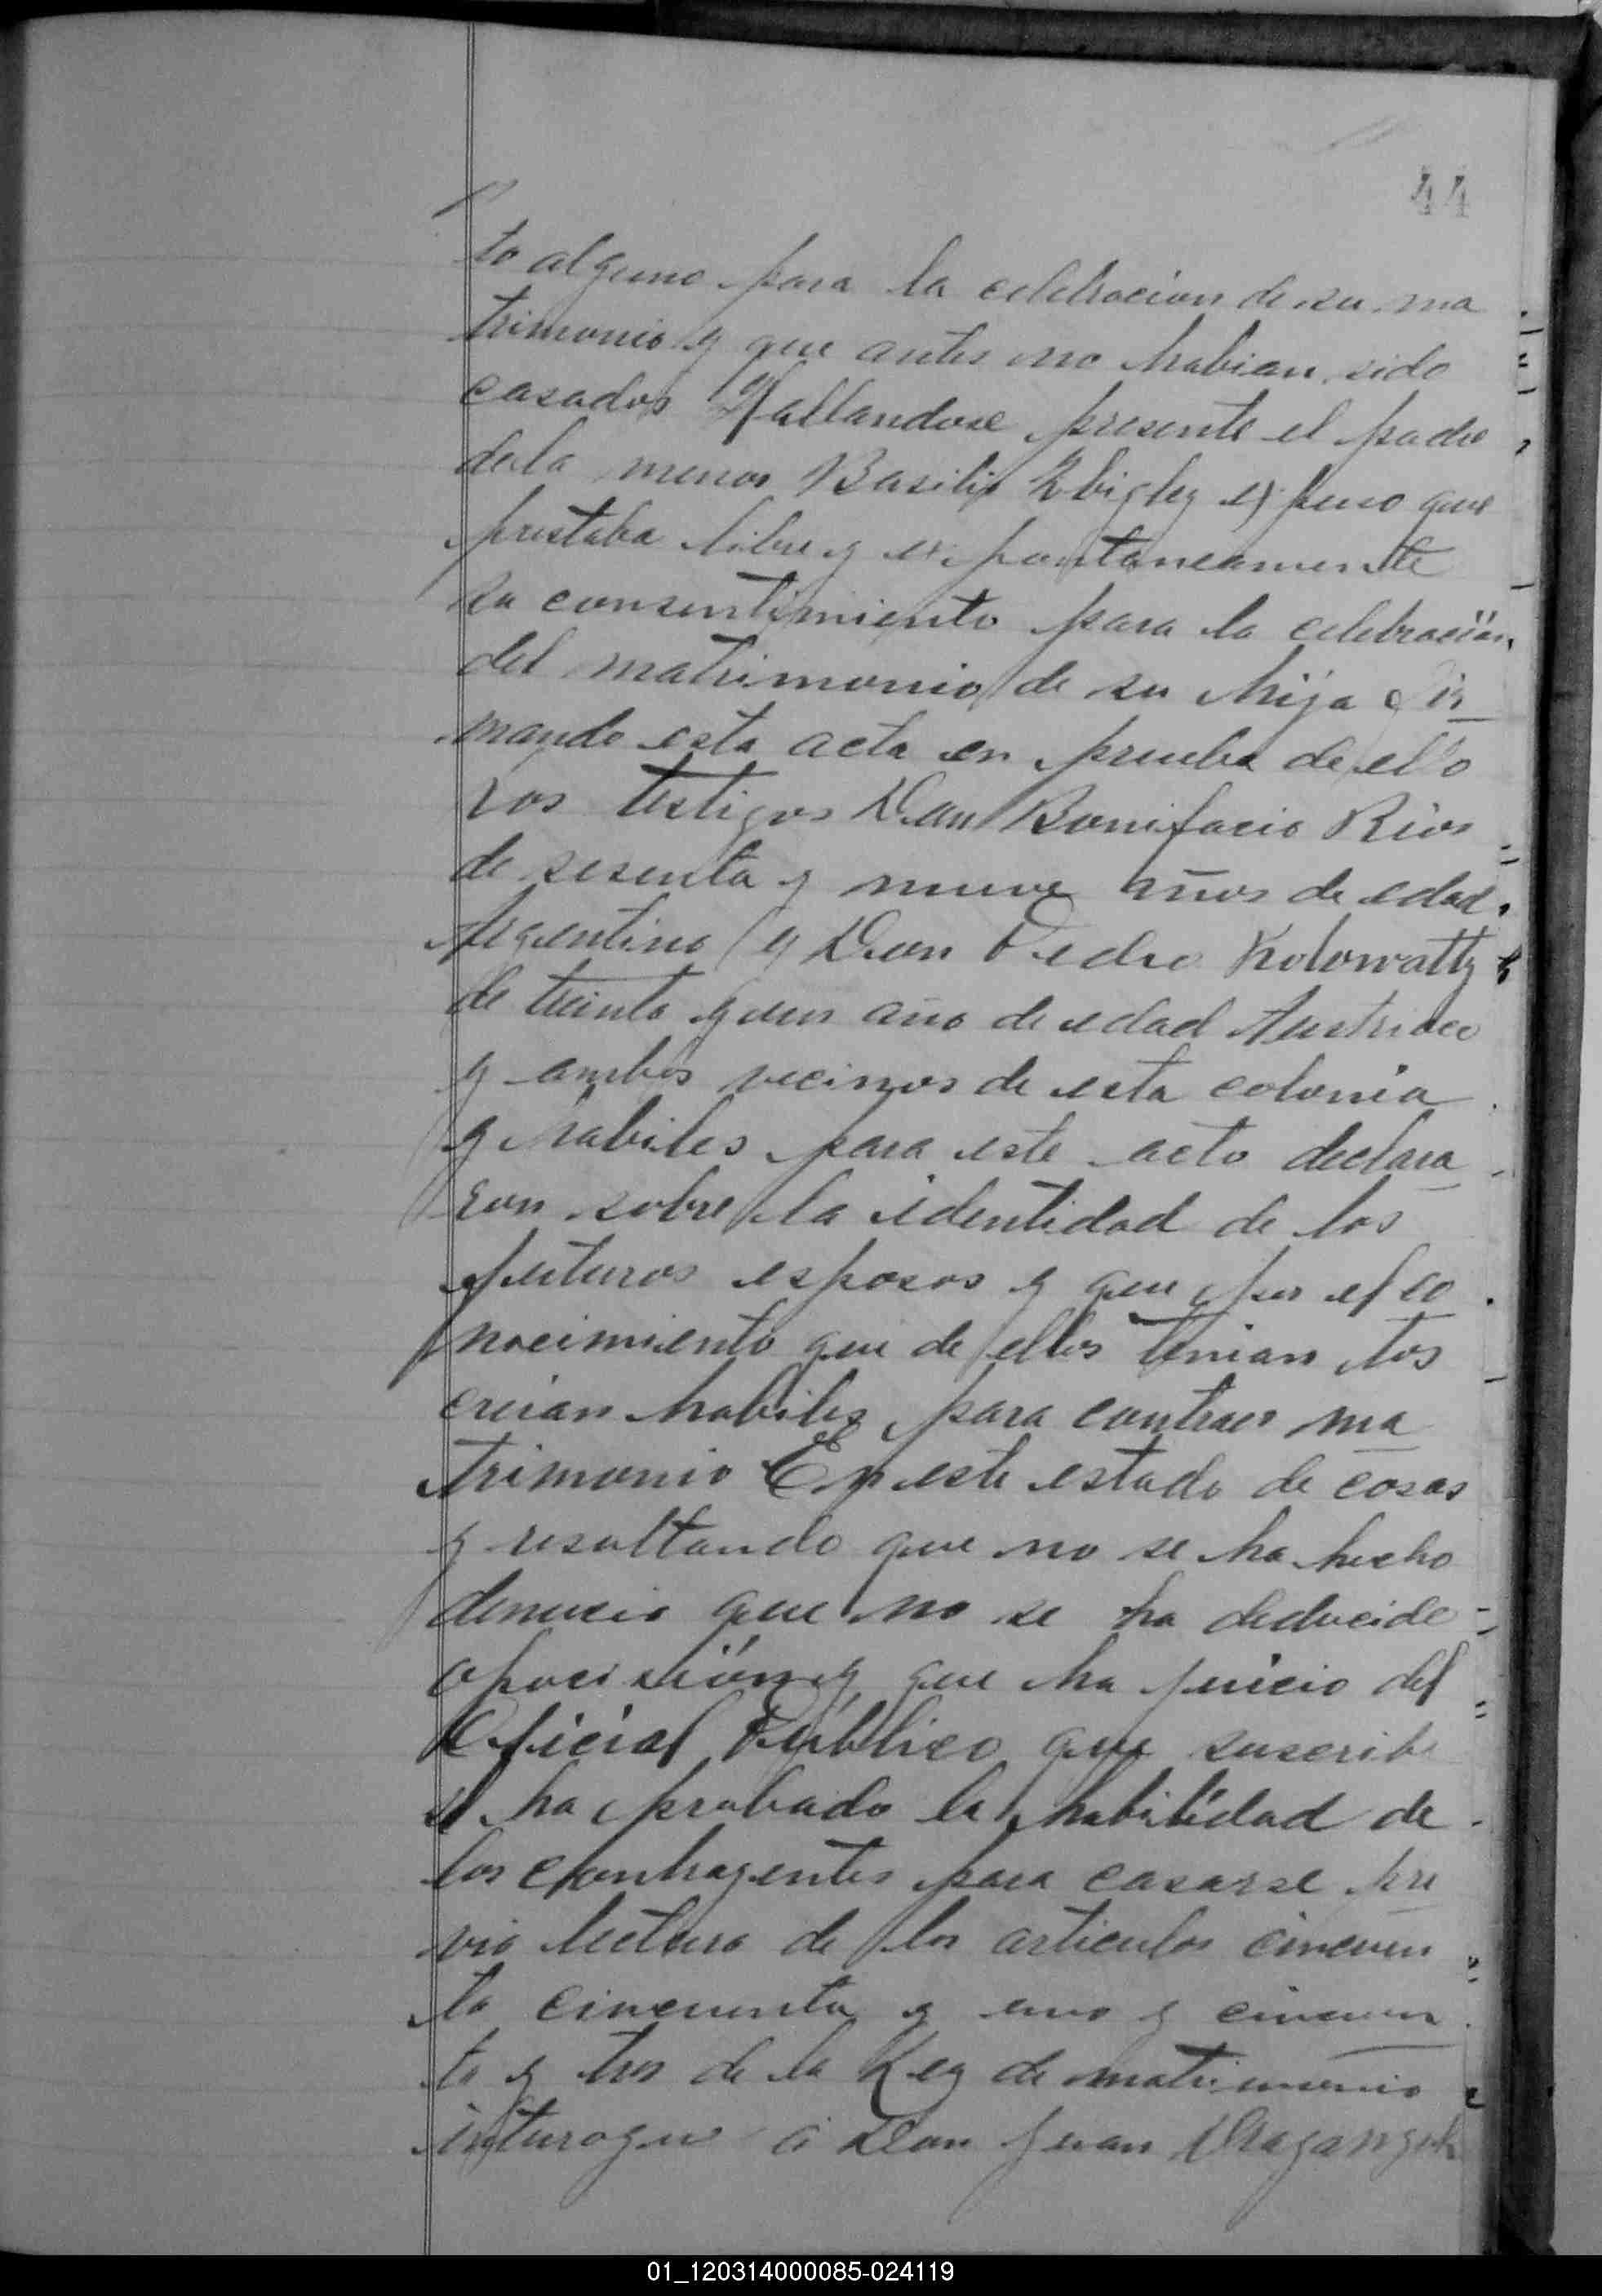 44
to alguno para la celebracion de su ma
trimonio y que antes no habian sido
casados Hallandose presente el padre
de la menor Basilio Zbigley expuso que
prestaba libre y expontaneamente
su consentimiento para la celebración
del matrimonio de su hija Fir
mando esta acta en prueba de ello
Los testigos Don Bonifacio Rios
de sesenta y nueve años de edad
Argentino y Don Pedro Kolowatty
de treinta y un año de edad Austriaco
y ambos vecinos de esta colonia
y habiles para este acto declara
ron sobre la identidad de los
futuros esposos y que por el co
nocimiento que de ellos tenian los
creian habiles para contraer ma
trimonio En este estado de cosas
y resultando que no se ha hecho
denucia que no se ha deducido
oposición y que ha juicio del
Oficial Público que suscribe
se ha probado la habilidad de
los contragentes para casarse pre
via lectura de los articulos cincuen
ta cincuenta y uno y cincuen
ta y tres de la Ley de matrimonio
interogue á Don Juan
01_120314000085-024119